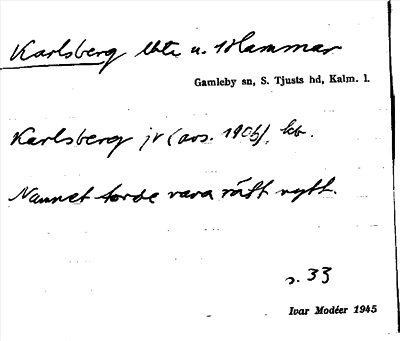 Karlsberg lht u. Hammar
Gamleby sn, S. Tjusts hd, Kalm. l.
Karlsberg jr (avs. 1906), kb.
Namnet torde vara rätt nytt.
s. 33
Ivar Modéer 1945